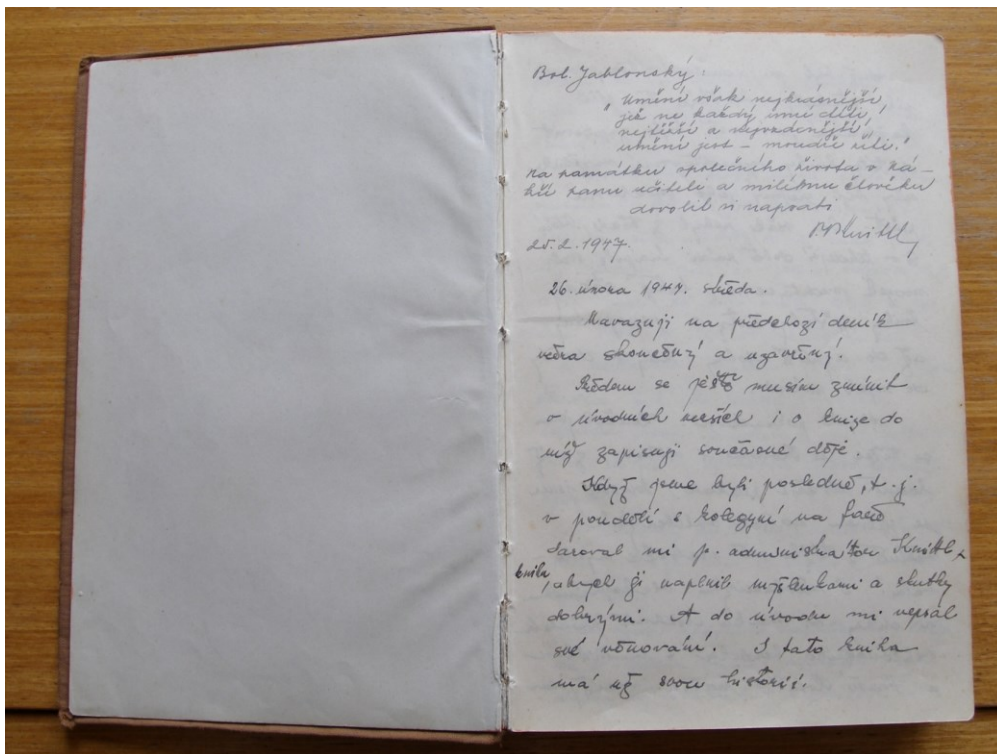 Bol. Jablonský:
„Umění však nejkrásnější,
jež ne každý umí ctíti,
nejtěžší a nejvzácnější
umění jest – moudře žíti."
Na památku společného života v Ká-
panu učiteli a milému člověku
dovolil si napsati
25.2.1947.
26. února 1947. středa.
Navazuji na předchozí deník
včera skončený a uzavřený.
Předem se ještě musím zmínit
v úvodních verších i o knize do
níž zapisuji současné děje.
Když jsme byli posledně, t.j.
v pondělí s kolegyní na faře
daroval mi p. administrátor Knittl
knihu, abych ji naplnil myšlenkami a skutky
dobrými. A do úvodu mi vepsal
své věnování. I tato kniha
má už svou historii.